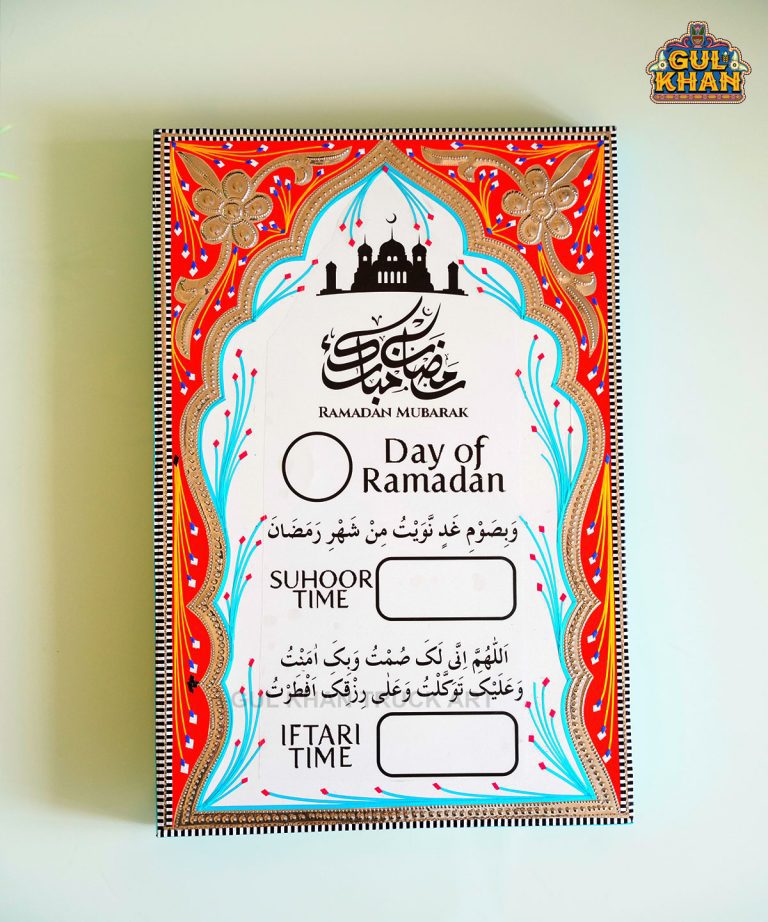 GUL
KHAN
رمضان مبارك
RAMADAN MUBARAK
Day of
Ramadan
وَبِصَوْمِ غَدٍ نَّوَيْتُ مِنْ شَهْرِ رَمَضَانَ
SUHOOR
TIME
اَللّٰهُمَّ اِنَّی لَکَ صُمْتُ وَبِکَ اٰمَنْتُ
وَعَلَيْکَ تَوَکَّلْتُ وَعَلٰی رِزْقِکَ اَفْطَرْتُ
GUL KHAN TRUCK ART
IFTARI
TIME